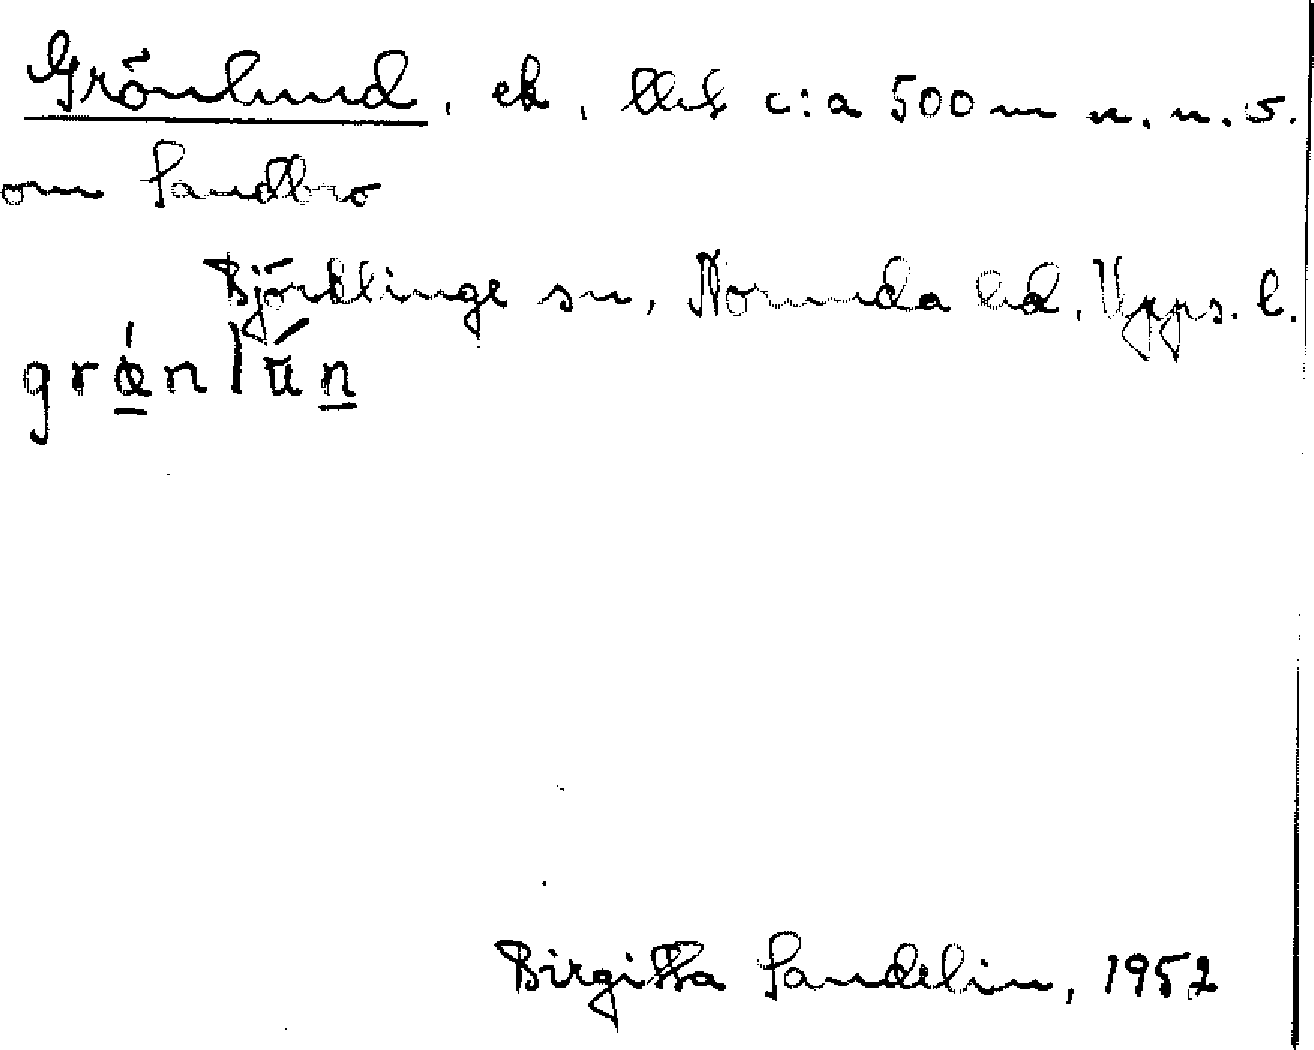 Grönlund, ek, Ekeb c:a 500 m n.n.ö.
om Sandbro
Björklinge sn, Norunda hd, Upps. l.
grǿnlún
Birgitta Sandelin, 1952